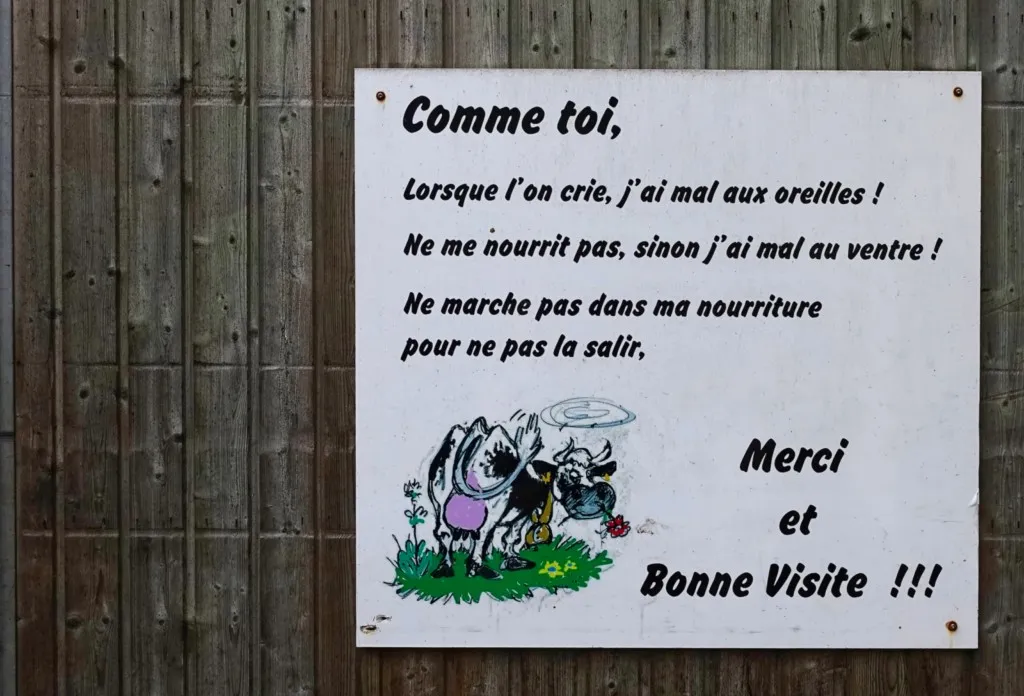 Comme toi,
Lorsque l'on crie, j'ai mal aux oreilles !
Ne me nourrit pas, sinon j'ai mal au ventre !
Ne marche pas dans ma nourriture
pour ne pas la salir,
Merci
et
Bonne Visite !!!